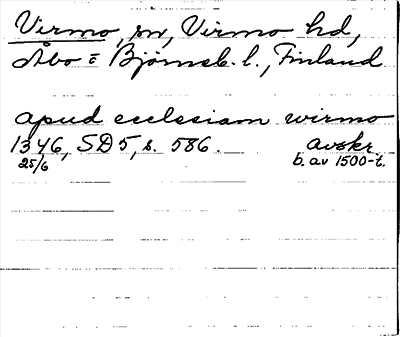 Virmo, sn, Virmo hd,
Åbo = Björneb. l., Finland
apud ecclesiam wirmo
1346, SD 5, s. 586. avskr
25/6 b. av 1500-t.